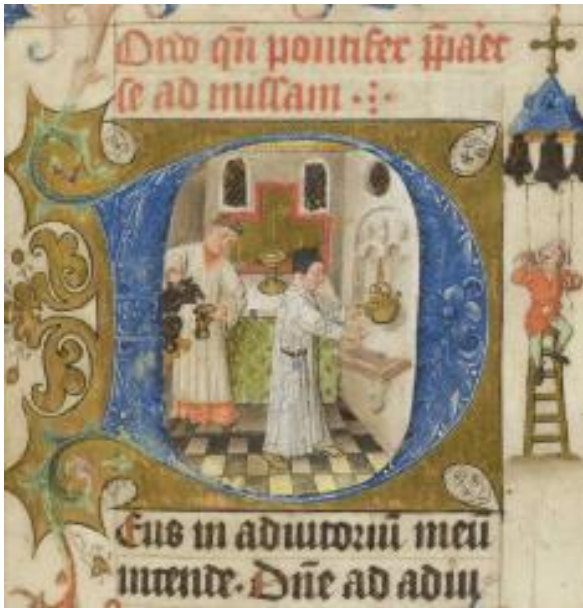 Ordo qn̄ pontifex p̄paret
se ad missam
Deus in adiutoriū meū
intende. Dn̄e ad adiu